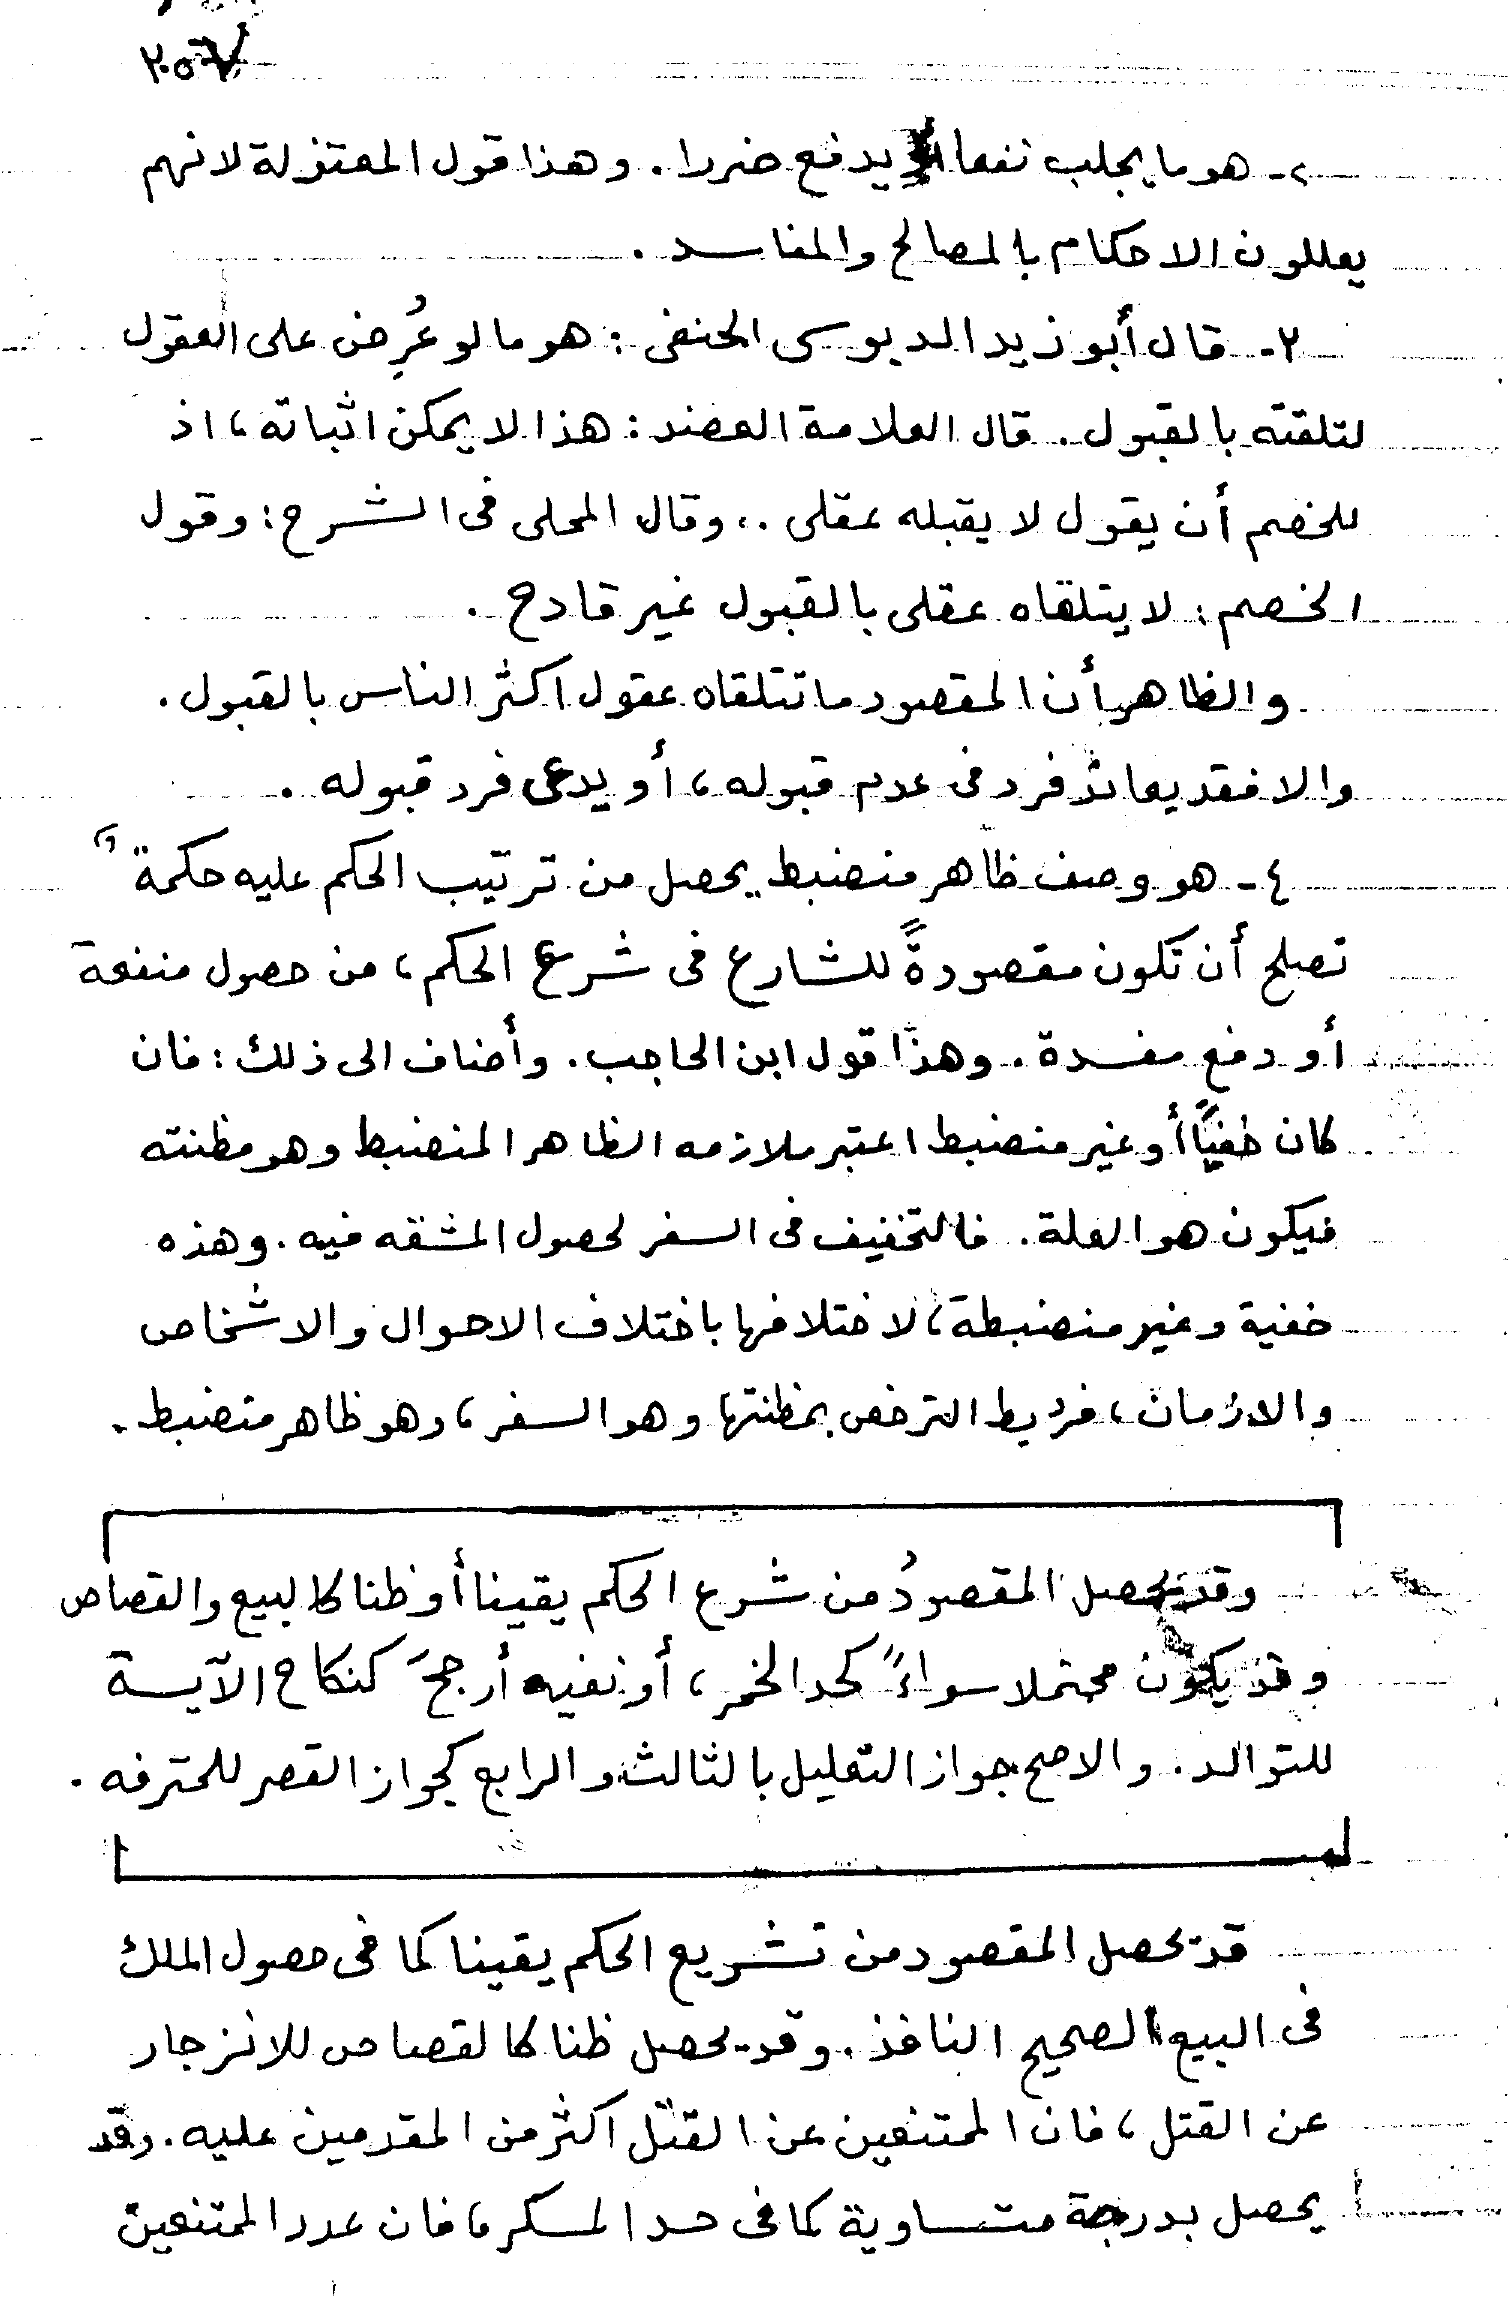 ٢- هو ما يجلب نفعا أو يدفع ضررا . وهذا قول المعتزلة لانهم
يعللون الاحكام بالمصالح والمفاسد .
٢- قال أبو زيد الدبوسى الحنفى : هو ما لو عُرِض على العقول
لتلقته بالقبول . قال العلامة العضد : هذا لا يمكن اثباته ، اذ
للخصم أن يقول لا يقبله عقلى .، وقال المحلى فى الشرح : وقول
الخصم : لا يتلقاه عقلى بالقبول غير قادح .
والظاهر أن المقصود ما تتلقاه عقول اكثر الناس بالقبول .
والا فقد يعاند فرد فى عدم قبوله ، أو يدعى فرد قبوله .
٤- هو وصف ظاهر منضبط يحصل من ترتيب الحكم عليه حكمة ٌ
تصلح أن تكون مقصودةً للشارع فى شرع الحكم ، من حصول منفعة
أو دفع مفسدة . وهذا قول ابن الحاجب . وأضاف الى ذلك : فان
كان خفيًا أو غير منضبط اعتبر ملازمه الظاهر المنضبط وهو مظنته
فيكون هو العلة . فالتخفيف فى السفر لحصول المشقه فيه . وهذه
خفية وغير منضبطة ، لاختلافها باختلاف الاحوال والاشخاص
والازمان ، فربط الترخص بمظنتها وهو السفر ، وهو ظاهر منضبط .
وقد يحصل المقصودُ من شرع الحكم يقينا أو ظنا كالبيع والقصاص
وقد يكون محتملا سواءً كحد الخمر ، أو نفيه أرجحَ كنكاح الآيسة
للتوالد . والاصح جواز التعليل بالثالث والرابع كجواز القصر للمترفه .
قد يحصل المقصود من تشريع الحكم يقينا كما فى حصول الملك
فى البيع الصحيح النافذ . وقد يحصل ظنا كالقصاص للانزجار
عن القتل ، فان الممتنعين عن القتل اكثر من المقدمين عليه . وقد
يحصل بدرجة متساوية كما فى حد المسكر ، فان عدد الممتنعين